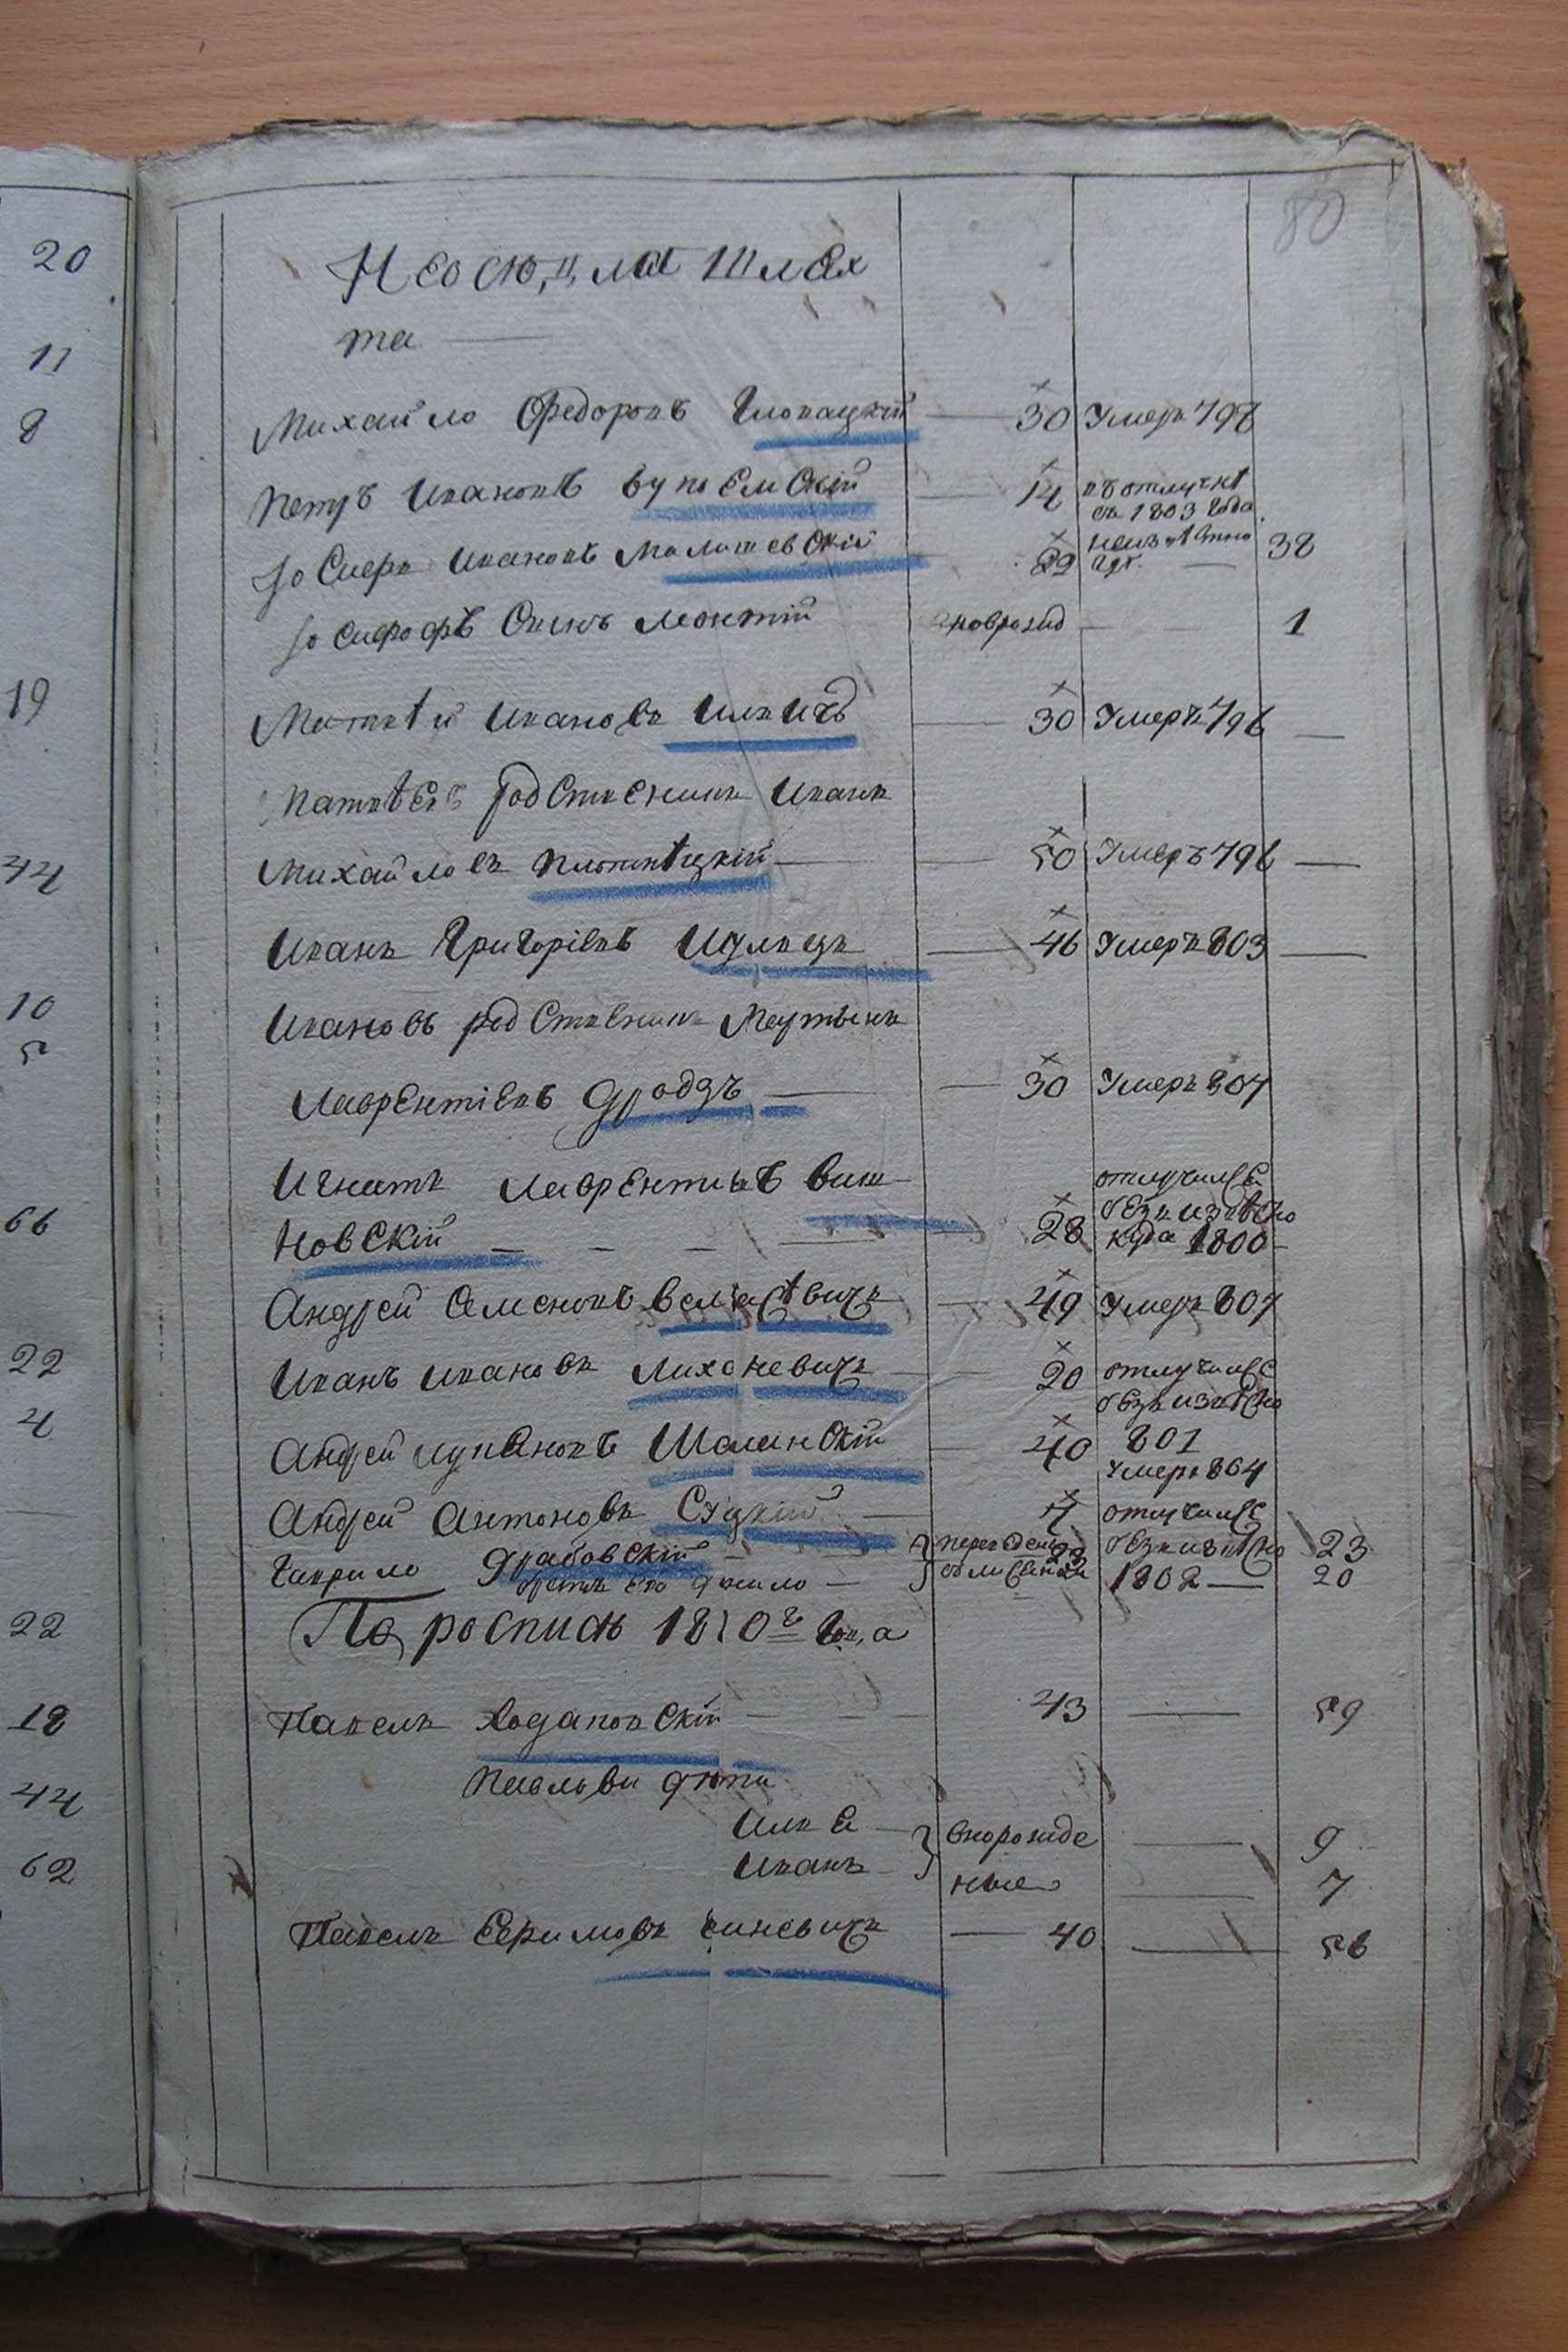 20
11
8
19
44
10
5
66
22
4
22
18
44
62
80
Неосѣдлая Шлях
та
Михайло Федоровъ Гловацкій 30 Умеръ 798
Петръ Ивановъ 14 въ отлучкѣ
съ 1803 года
Іосифъ Ивановъ Малишевскій 29 неизвѣстно 38
гдѣ
Іосифовъ Сынъ Леонтій новорожд 1
Матвѣй Ивановъ Илвичъ 30 Умеръ 796
Матвѣевъ родственникъ Иванъ
Михайловъ 50 Умеръ 796
Иванъ Григоріевъ 46 Умеръ 803
Ивановъ родственникъ Мартынъ
Лаврентіевъ Дроздъ 30 Умеръ 807
Игнатъ Лаврентиевъ Виш
новскій 28 отлучился
безъ извѣстно
куда 1800
Андрей Семеновъ 49 Умеръ 807
Иванъ Ивановъ Лихоневичъ 20 отлучился
безъизвѣстно
801
Андрей Лукяновъ Шалинскій 40 умеръ 804
Андрей Антоновъ Сяцкій отлучился
безъизвѣстно
1802
Гаврило Драбовскій 23
братъ Его Данило 20
По росписи 1810г года
Павелъ Ходаковскій 43 59
Павловы дѣти
Илья 9
Иванъ 7
новорожде
ные
Павелъ Ефимовъ Синевичъ 40 56